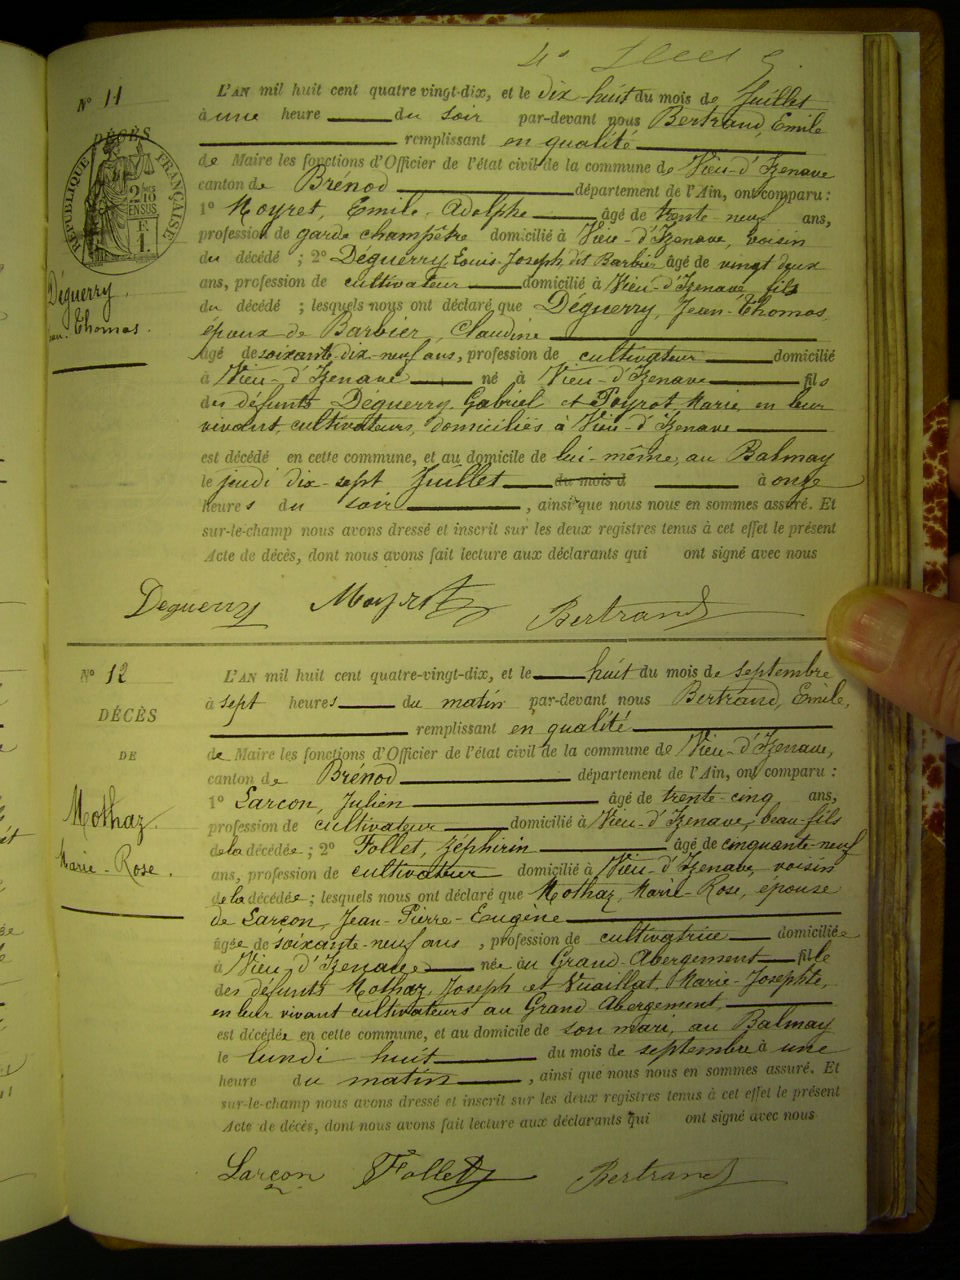 N° 11
DÉCÈS
RÉPUBLIQUE FRANÇAISE
2/10
EN SUS
F.
1.
Déguerry
Jean-Thomas.
L'AN mil huit cent quatre vingt-dix, et le dix-huit du mois de Juillet
à une heure du soir par-devant nous Bertrand, Emile
remplissant en qualité
de Maire les fonctions d'Officier de l'état civil de la commune de Vieu-d'Izenave
canton de Brénod département de l'Ain, ont comparu :
1° Moyret, Emile-Adolphe âgé de trente-neuf ans,
profession de garde champêtre domicilié à Vieu-d'Izenave, voisin
du décédé ; 2° Déguerry Louis-Joseph dit Barbier âgé de vingt deux
ans, profession de cultivateur domicilié à Vieu-d'Izenave fils
du décédé ; lesquels nous ont déclaré que Déguerry, Jean-Thomas
époux de Barbier, Claudine
âgé de soixante-dix-neuf ans, profession de cultivateur domicilié
à Vieu-d'Izenave né à Vieu-d'Izenave fils
des défunts Deguerry Gabriel et Poyrot Marie, en leur
vivant, cultivateurs, domiciliés à Vieu-d'Izenave
est décédé en cette commune, et au domicile de lui-même, au Balmay
le jeudi dix-sept Juillet du mois d à onze
heures du soir , ainsi que nous nous en sommes assuré. Et
sur-le-champ nous avons dressé et inscrit sur les deux registres tenus à cet effet le présent
Acte de décès, dont nous avons fait lecture aux déclarants qui ont signé avec nous
Deguerry Moyret Bertrand
N° 12
DÉCÈS
DE
Mothaz
Marie-Rose.
L'AN mil huit cent quatre-vingt-dix, et le huit du mois de septembre
à sept heures du matin par-devant nous Bertrand, Emile,
remplissant en qualité
de Maire les fonctions d'Officier de l'état civil de la commune de Vieu-d'Izenave,
canton de Brénod département de l'Ain, ont comparu :
1° Sarcon, Julien âgé de trente-cinq ans,
profession de cultivateur domicilié à Vieu-d'Izenave, beau-fils
de la décédée ; 2° Follet, Zéphirin âgé de cinquante-neuf
ans, profession de cultivateur domicilié à Vieu-d'Izenave, voisin
de la décédée ; lesquels nous ont déclaré que Mothaz, Marie-Rose, épouse
de Sarcon, Jean-Pierre-Eugène
âgée de soixante-neuf ans , profession de cultivatrice domiciliée
à Vieu-d'Izenave née au Grand-Abergement fille
des défunts Mothaz, Joseph et Vuaillat, Marie-Josephte,
en leur vivant cultivateurs au Grand Abergement,
est décédée en cette commune, et au domicile de son mari, au Balmay
le lundi huit du mois de septembre à une
heure du matin , ainsi que nous nous en sommes assuré. Et
sur-le-champ nous avons dressé et inscrit sur les deux registres tenus à cet effet le présent
Acte de décès, dont nous avons fait lecture aux déclarants qui ont signé avec nous
Sarcon Follet Bertrand